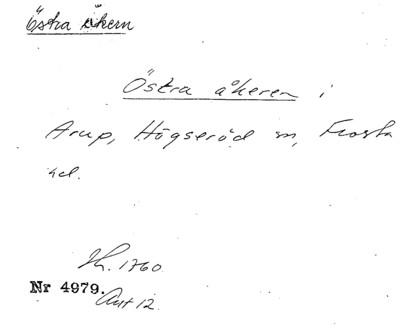 Östra åkern
Östra åkeren i
Arup, Högseröd sn, Frosta
hd.
Lh. 1760.
Nr 4979.
Akt 12